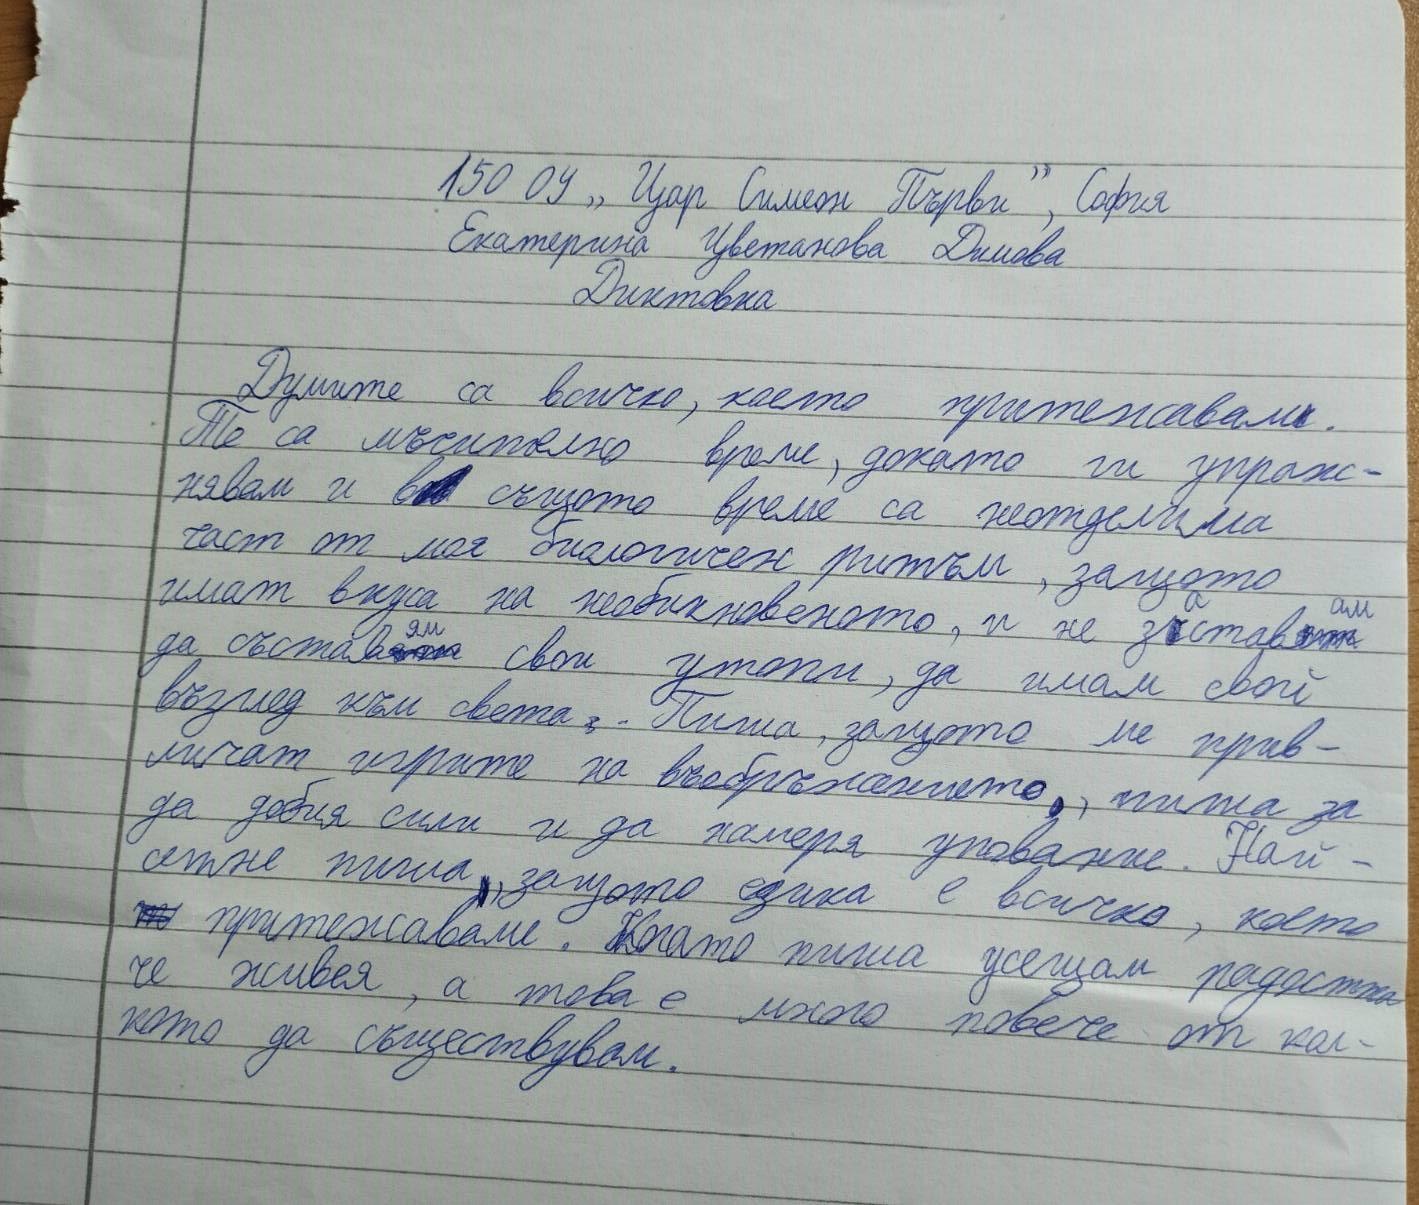 150 ОУ „Цар Симеон Първи”, София
Екатерина Цветанова Димова
Диктовка
Думите са всичко, което притежаваме.
Те са мъчително време, докато ги упраж-
нявам и в същото време са неотделима
част от моя биологичен ритъм, защото
имат вкуса на необикновеното, и не заставам
да съставям свои утопии, да имам свой
възглед към света. Пиша, защото ме прив-
личат игрите на въобръжението, пиша за
да добия сили и да намеря упование. Най-
сетне пиша, защото езика е всичко, което
притежаваме. Когато пиша усещам радостта
че живея, а това е много повече от кол-
кото да съществувам.